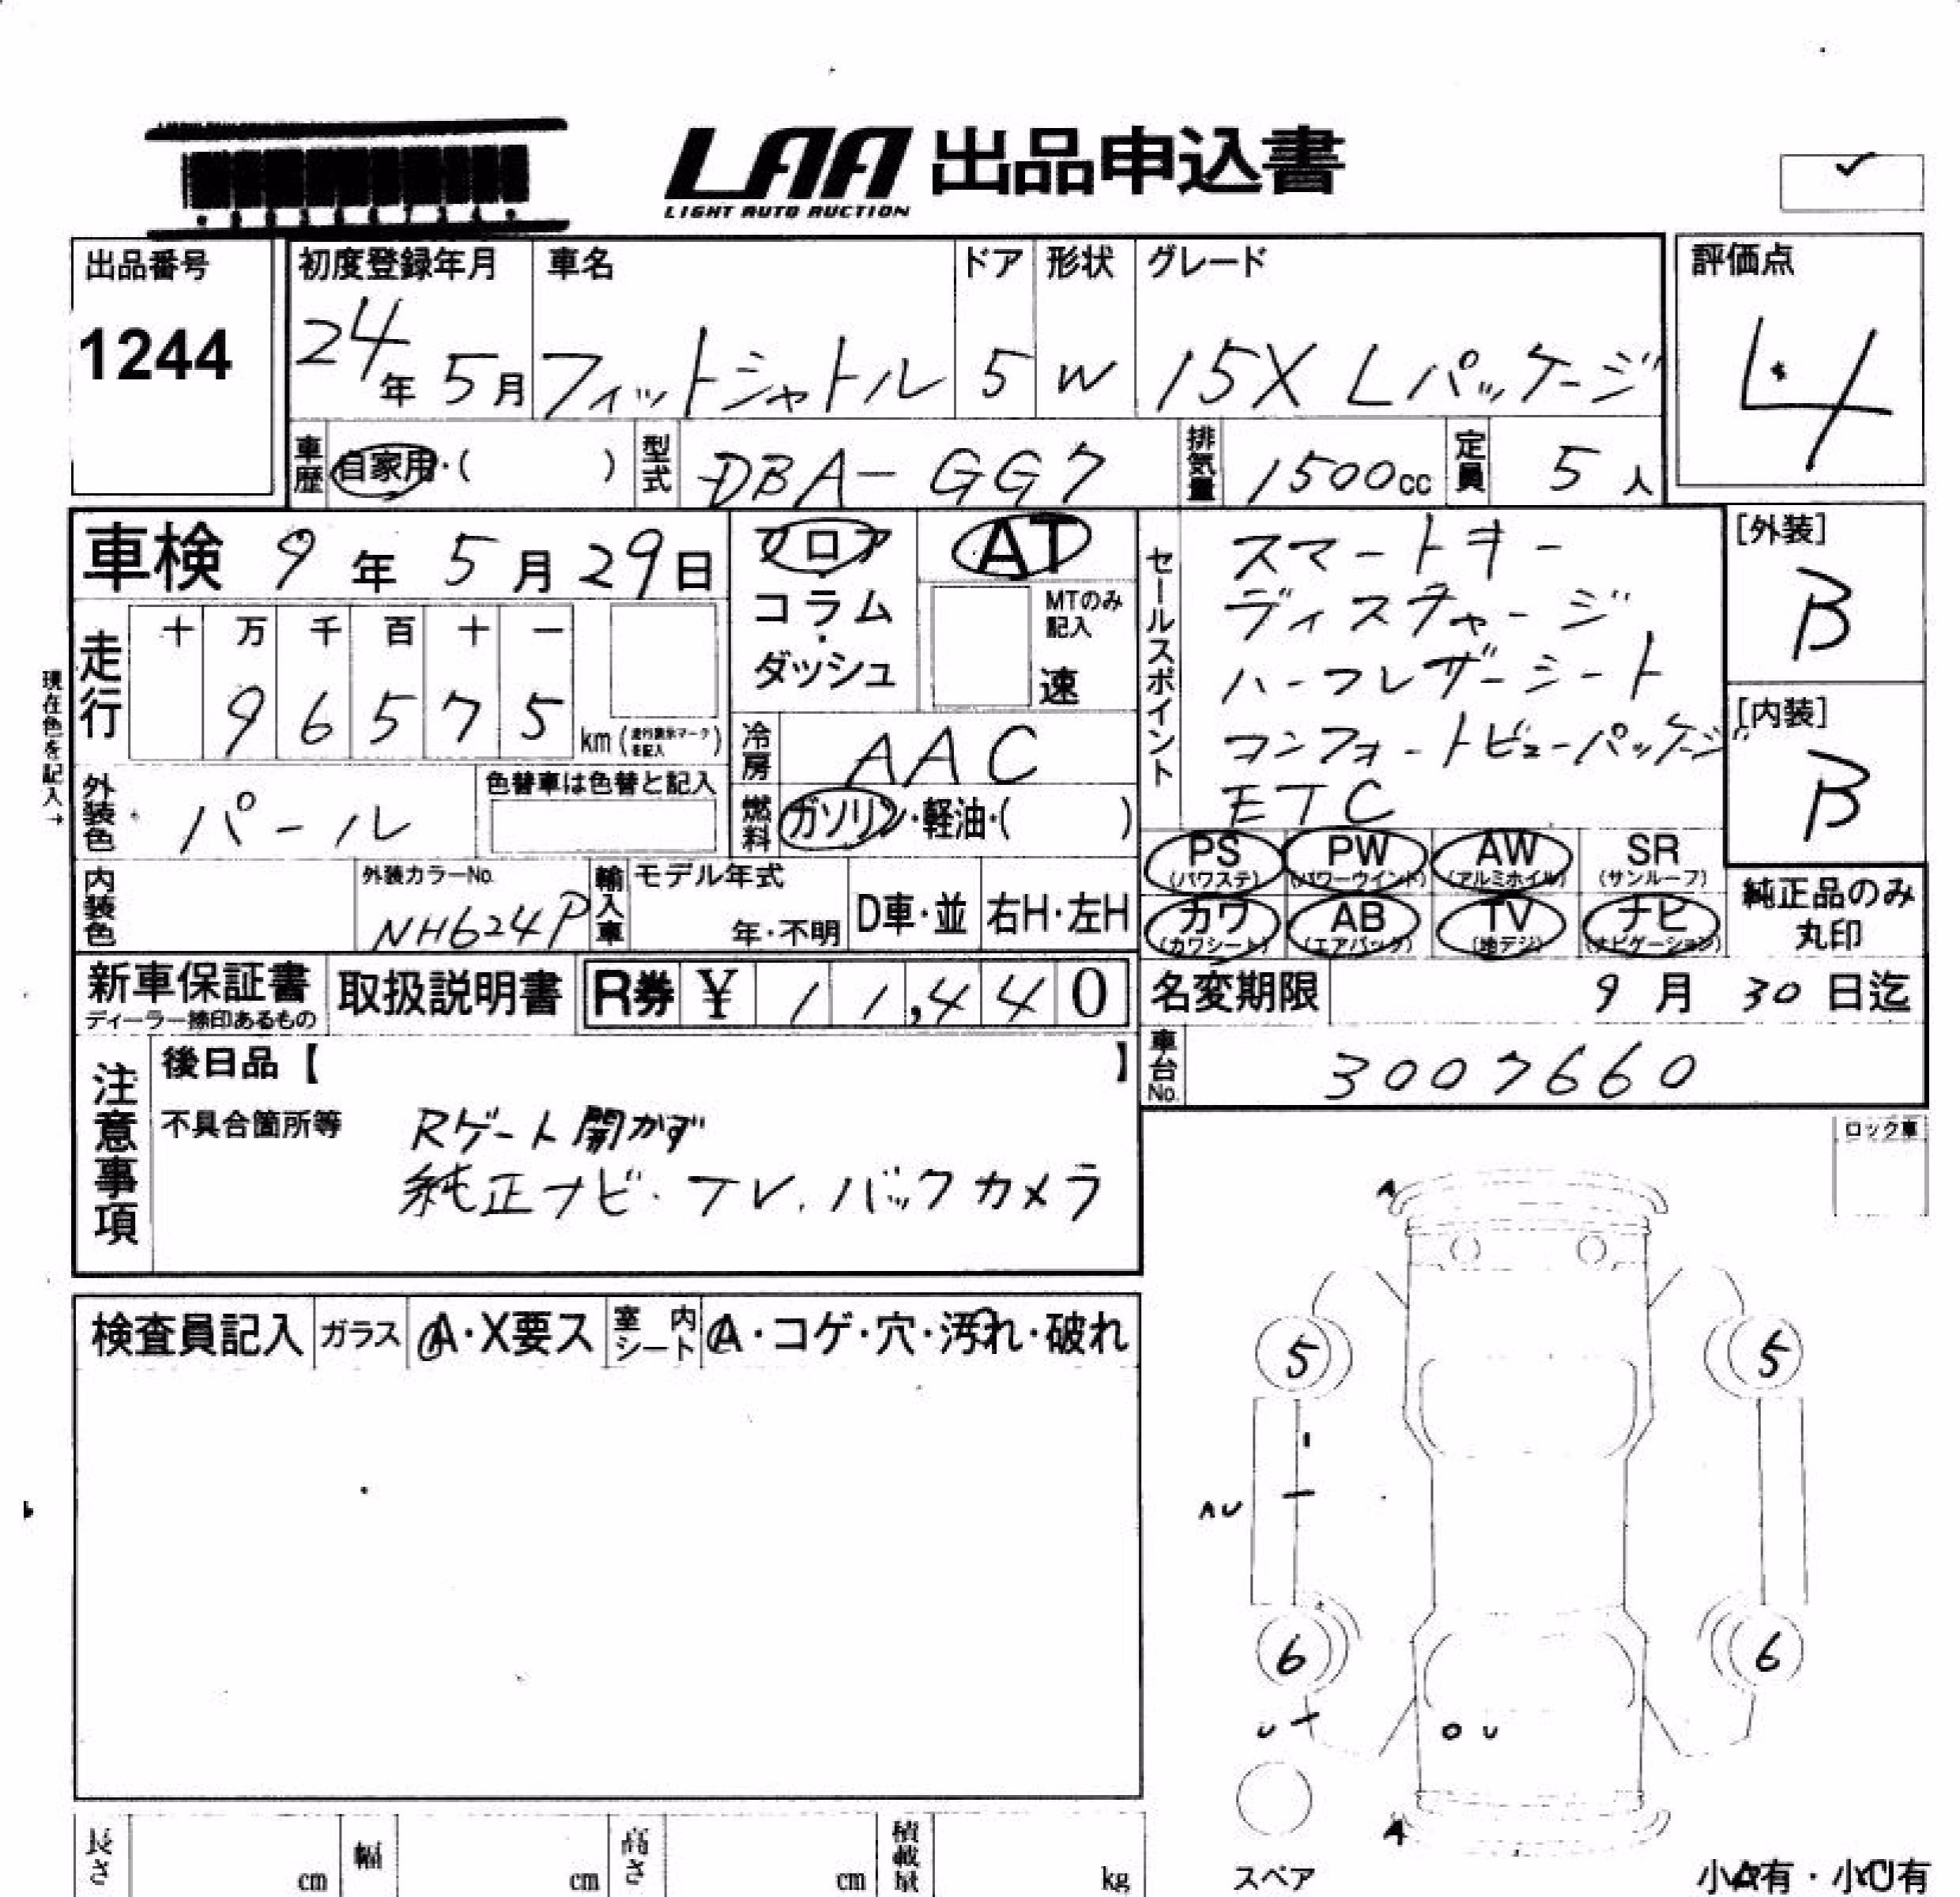 LAA 出品申込書
LIGHT AUTO AUCTION
出品番号
1244
初度登録年月
24年 5月
車名
フィットシャトル
ドア
5
形状
W
グレード
15X Lパッケージ
評価点
4
車歴 自家用・( )
型式 DBA-GG7
排気量 1500cc
定員 5人
車検 9年 5月 29日
フロア
コラム
・
ダッシュ
AT
MTのみ
記入
速
セールスポイント
スマートキー
ディスチャージ
ハーフレザーシート
コンフォートビューパッケージ
ETC
[外装]
B
[内装]
B
現在色を記入→
走行
十 万 千 百 十 一
9 6 5 7 5
km (走行表示マークを記入)
冷房 AAC
外装色 パール
色替車は色替と記入
燃料 ガソリン・軽油・( )
PS (パワステ)
PW (パワーウインド)
AW (アルミホイル)
SR (サンルーフ)
カワ (カワシート)
AB (エアバック)
TV (地デジ)
ナビ (ナビゲーション)
純正品のみ
丸印
内装色
外装カラーNo.
NH624P
輸入車
モデル年式
年・不明
D車・並
右H・左H
新車保証書
ディーラー捺印あるもの
取扱説明書
R券 ¥ 11,440
名変期限 9月 30日迄
車台No. 3007660
注意事項
後日品【 】
不具合箇所等
Rゲート開かず
純正ナビ・TV.バックカメラ
ロック車
検査員記入
ガラス A・X要ス
室内シート A・コゲ・穴・汚れ・破れ
A
5 5
AU
6 6
U
U
A
スペア
長さ cm
幅 cm
高さ cm
積載量 kg
小A有・小U有